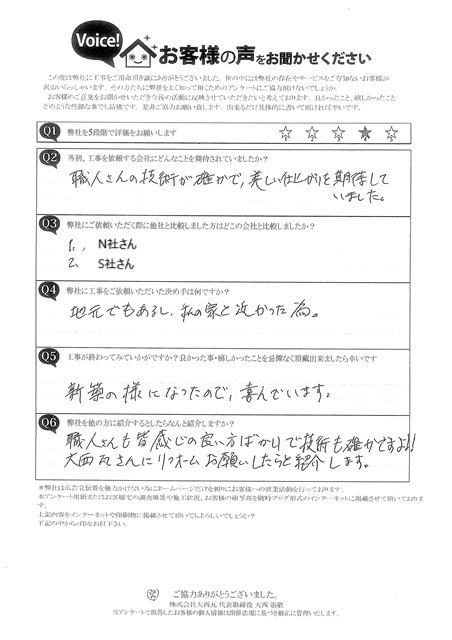 Voice!
お客様の声をお聞かせください
この度は弊社に工事をご用命頂き誠にありがとうございました。世の中には弊社の存在やサービスをご存知ないお客様が
沢山いらっしゃいます。その方たちに弊社をよく知って頂くためのアンケートにご協力頂けないでしょうか。
お客様のご意見をお聞かせいただき今後の活動に反映させていただきたいと考えております。良かったこと、嬉しかったこと
どのような些細な事でも結構です。是非ご協力お願い致します。出来るだけ具体的に書いて頂ければ幸いです。
Q1 弊社を5段階で評価をお願いします
1 2 3 4 5
Q2 当初、工事を依頼する会社にどんなことを期待されていましたか？
職人さんの技術が確かで、美しい仕上がりを期待して
いました。
Q3 弊社にご依頼いただく際に他社と比較しました方はどこの会社と比較しましたか？
1、 N社さん
2、 S社さん
Q4 弊社に工事をご依頼いただいた決め手は何ですか？
地元でもあるし、私の家と近かった為。
Q5 工事が終わってみていかがですか？良かった事・嬉しかったことを忌憚なく頂戴出来ましたら幸いです
新築の様になったので、喜んでいます。
Q6 弊社を他の方に紹介するとしたらなんと紹介しますか？
職人さんも皆感じの良い方ばかりで技術も確かですよ!!
大西瓦さんにリフォームお願いしたらと紹介します。
＊弊社は広告宣伝費を極力かけない為にホームページだけを頼りにお客様への営業活動を行っております。
本アンケート用紙またはお客様宅の調査風景や施工状況、お客様の顔写真を随時ブログ形式のインターネットに掲載させて頂いております。
上記内容をインターネットや印刷物に掲載させて頂いてもよろしいでしょうか？
下記の中から1印をお付下さい。
ご協力ありがとうございました。
株式会社大西瓦 代表取締役 大西
当アンケートで取得したお客様の個人情報は関係法規に基づき厳正に管理いたします。